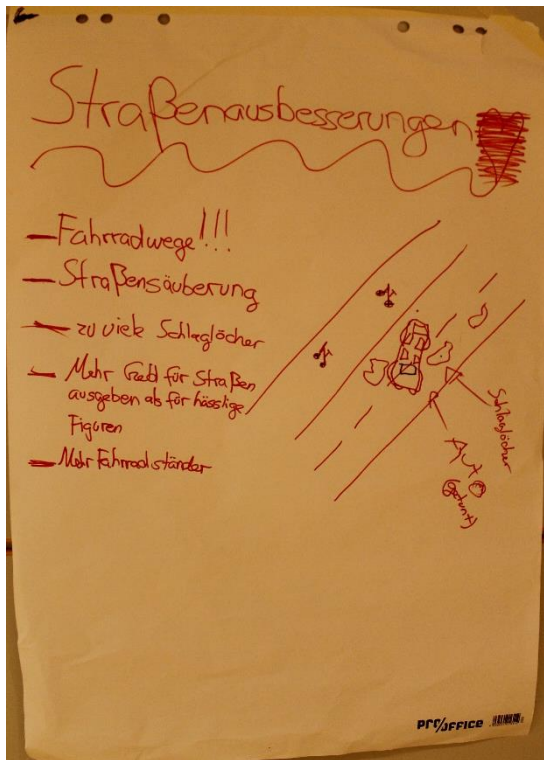 Straßenausbesserungen
– Fahrradwege!!!
– Straßensäuberung
– zu viele Schlaglöcher
– Mehr Geld für Straßen
ausgeben als für hässlige
Figuren
– Mehr Fahrradständer
Schlaglöcher
Auto
(getunt)
PRO/OFFICE